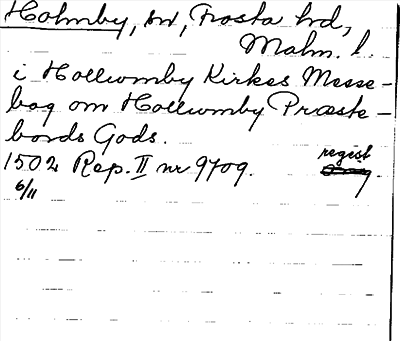 Holmby, sn, Frosta hd,
Malm. l.
i Hollumby Kirkes Messe-
bog om Hollumby Præste-
bords Gods.
1502 Rep. II nr 9709. regest
6/11